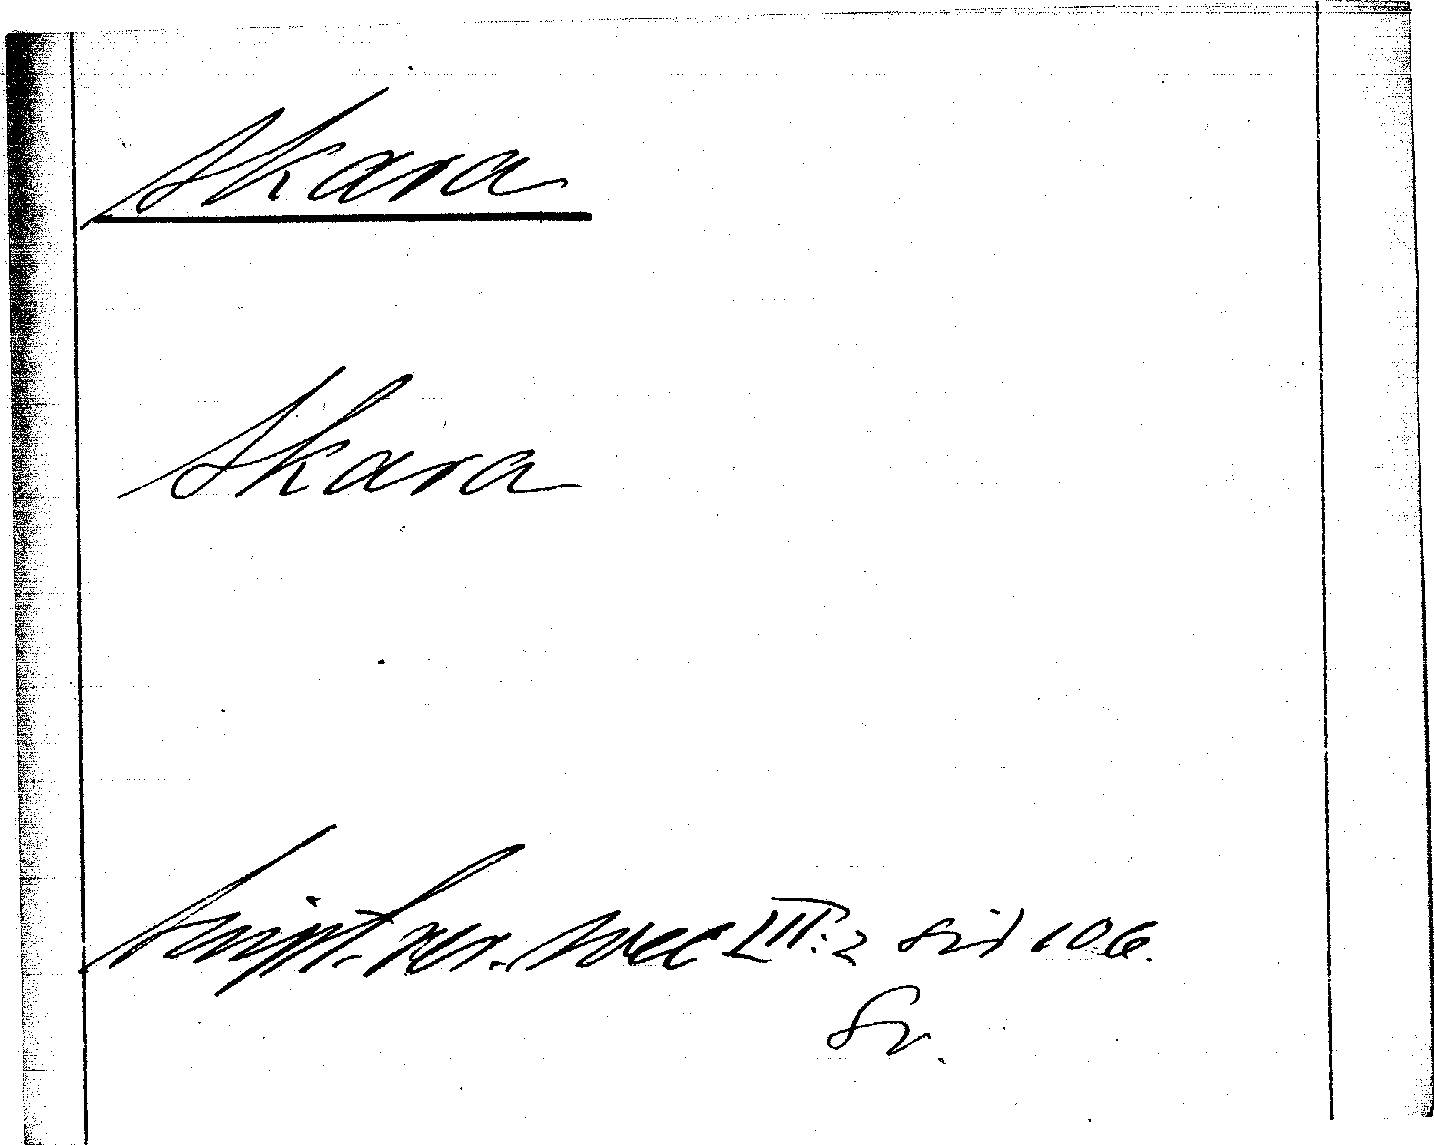 Skara
Skara
Script. rer. svec III:2 sid 106.
Sv.